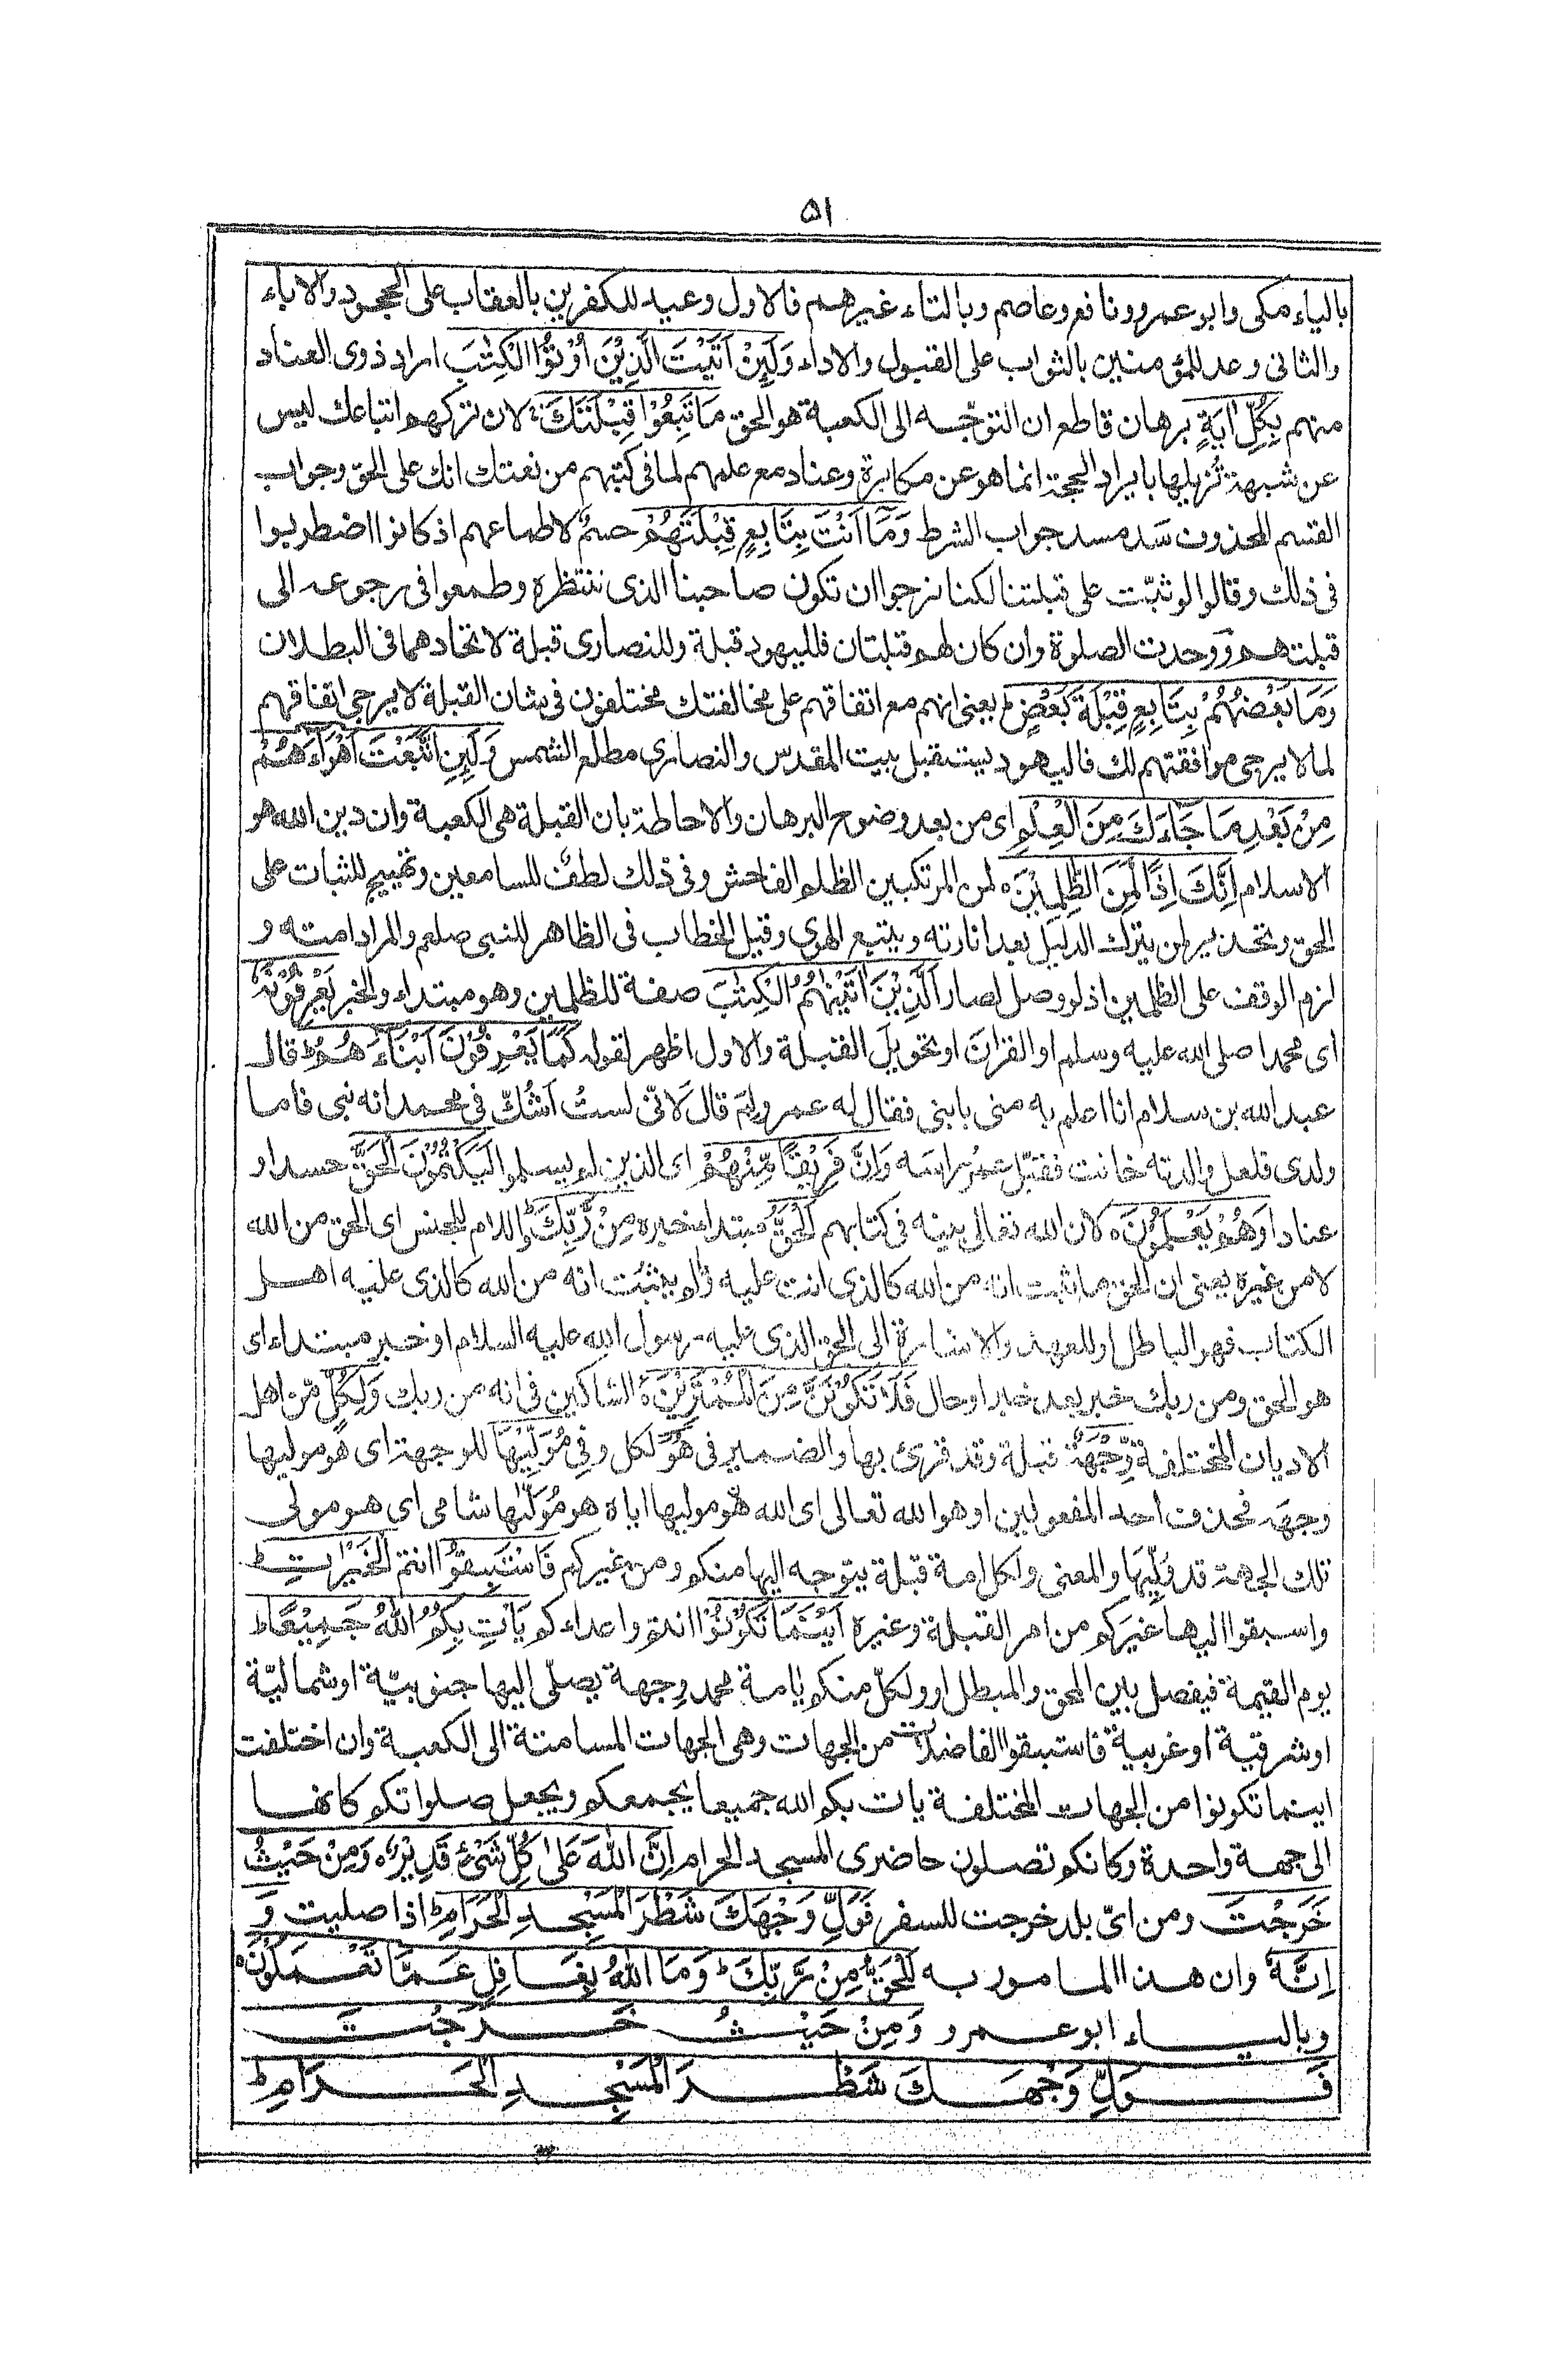 ٥١
بالياء مكى وابو عمرو ونافع وعاصم وبالتاء غيرهم فالاول وعيد للكفرين بالعقاب على الجحود والاباء
والثانى وعد للمؤمنين بالثواب على القبول والاداء وَلَئِنْ اَتَيْتَ الَّذِيْنَ اُوْتُوا الْكِتٰبَ اراد ذوى العناد
منهم بِكُلِّ اٰيَةٍ برهان قاطع ان التوجّه الى الكعبة هو الحق مَا تَبِعُوْا قِبْلَتَكَ لان تركهم اتباعك ليس
عن شبهة تُزيلها بايراد الحجة انما هو عن مكابرة وعناد مع علمهم لما فى كتبهم من نعتك انك على الحق وجواب
القسم المحذوف سَد مسد جواب الشرط وَمَا اَنْتَ بِتَابِعٍ قِبْلَتَهُمْ حسمٌ لاطماعهم اذ كانوا اضطربوا
فى ذلك وقالوا لو ثبّت على قبلتنا لكنا نرجوا ان تكون صاحبنا الذى ننتظره وطمعوا فى رجوعه الى
قبلتهم ووحدت الصلوة وان كان لهم قبلتان فلليهود قبلة وللنصارى قبلة لاتحادهما فى البطلان
وَمَا بَعْضُهُمْ بِتَابِعٍ قِبْلَةَ بَعْضٍ ط يعنى انهم مع اتفاقهم على مخالفتك مختلفون فى شان القبلة لا يرجى اتفاقهم
لما لا يرجى موافقتهم لك فاليهود يستقبل بيت المقدس والنصارى مطلع الشمس وَلَئِنِ اتَّبَعْتَ اَهْوَآءَهُمْ
مِنْ بَعْدِ مَا جَآءَكَ مِنَ الْعِلْمِ اى من بعد وضوح البرهان والاحاطة بان القبلة هى الكعبة وان دين الله هو
الاسلام اِنَّكَ اِذًا لَّمِنَ الظّٰلِمِيْنَ ه لمن المرتكبين الظلم الفاحش وفى ذلك لطفٌ للسامعين وتهييج للثبات على
الحق وتحذير لمن يترك الدليل بعد انارته ويتبع الهوى وقيل الخطاب فى الظاهر للنبى صلعم والمراد امته و
لزم الوقف على الظلمين اذ لو وصل لصار اَلَّذِيْنَ اٰتَيْنٰهُمُ الْكِتٰبَ صفة للظلمين وهو مبتداء والخبر يَعْرِفُوْنَهٗ
اى محمدا صلى الله عليه وسلم او القران او تحويل القبلة والاول اظهر لقوله كَمَا يَعْرِفُوْنَ اَبْنَآءَهُمْ ط قال
عبد الله بن سلام انا اعلم به منى بابنى فقال له عمر ولِمَ قال لانّى لستُ اَشُكّ فى محمد انه نبى فاما
ولدى فلعل والدته خانت فقبّل عمر راسه وَاِنَّ فَرِيْقًا مِّنْهُمْ اى الذين لم يسلموا لَيَكْتُمُوْنَ الْحَقَّ حسدا و
عنادا وَهُمْ يَعْلَمُوْنَ ه لان الله تعالى بينه فى كتابهم اَلْحَقُّ مبتداء خبره مِنْ رَّبِّكَ واللام للجنس اى الحق من الله
لا من غيره يعنى ان الحق ما ثبت انه من الله كالذى انت عليه وما لم يثبت انه من الله كالذى عليه اهل
الكتاب فهو الباطل او للعهد والاشارة الى الحق الذى عليه رسول الله عليه السلام او خبر مبتداء اى
هو الحق ومن ربك خبر بعد خبر او حال فَلَا تَكُوْنَنَّ مِنَ الْمُمْتَرِيْنَ ه الشاكين فى انه من ربك وَلِكُلٍّ من اهل
الاديان المختلفة وِّجْهَةٌ قبلة وقد قرئ بها والضمير فى هُوَ لكل وفى مُوَلِّيْهَا للوجهة اى هو موليها
وجهَه فحذف احد المفعولين او هو الله تعالى اى الله هو موليها اياه هو مُوَلَّٰها شامى اى هو مولى
تلك الجهة قد وُلِّيَها والمعنى ولكل امة قبلة يتوجه اليها منكم ومن غيركم فَاسْتَبِقُوا انتم الْخَيْرٰتِ ط
واسبقوا اليها غيركم من امر القبلة وغيره اَيْنَمَا تَكُوْنُوْا انتم واعداءكم يَاْتِ بِكُمُ اللّٰهُ جَمِيْعًا ط
يوم القيمة فيفصل بين المحق والمبطل او ولكلّ منكم يا امة محمد وجهة يصلّى اليها جنوبيّة او شماليّة
او شرقية او غربية فاستبقوا الفاضلات من الجهات وهى الجهات المسامتة الى الكعبة وان اختلفت
اينما تكونوا من الجهات المختلفة يات بكم الله جميعا يجمعكم ويجعل صلواتكم كانها
الى جهة واحدة وكانكم تصلون حاضرى المسجد الحرام اِنَّ اللّٰهَ عَلٰى كُلِّ شَىْءٍ قَدِيْرٌ ه وَمِنْ حَيْثُ
خَرَجْتَ ومن اىّ بلد خرجت للسفر فَوَلِّ وَجْهَكَ شَطْرَ الْمَسْجِدِ الْحَرَامِ ط اذا صليت وَ
اِنَّهٗ وان هذا المامور به لَلْحَقُّ مِنْ رَّبِّكَ ط وَمَا اللّٰهُ بِغَافِلٍ عَمَّا تَعْمَلُوْنَ ه
وبالياء ابو عمرو وَمِنْ حَيْثُ خَرَجْتَ
فَوَلِّ وَجْهَكَ شَطْرَ الْمَسْجِدِ الْحَرَامِ ط